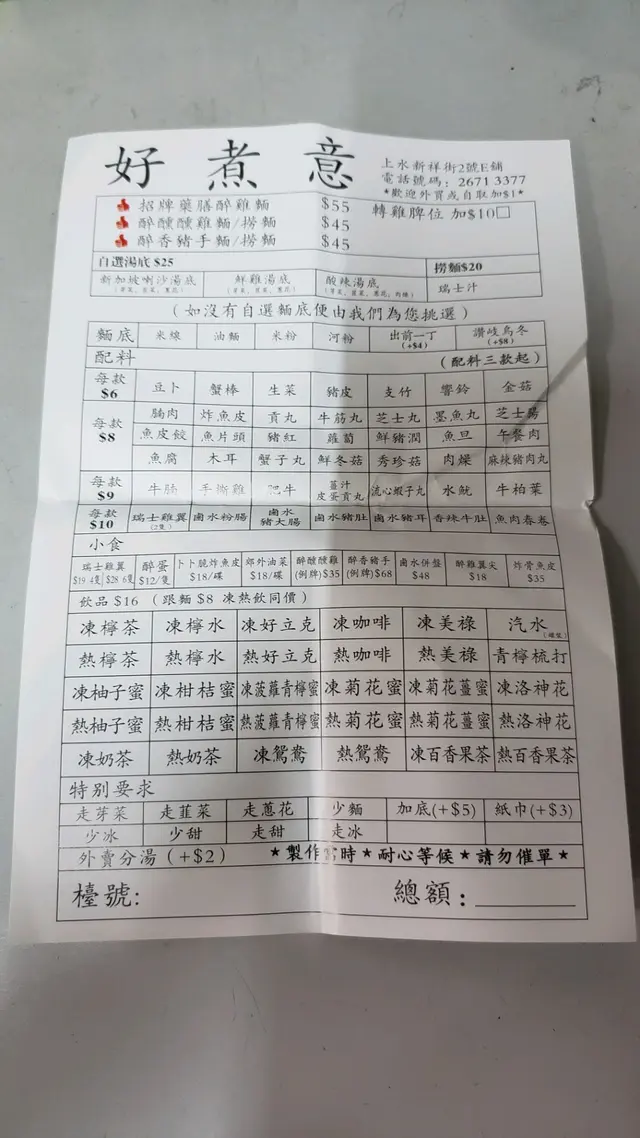 好煮意
上水新祥街2號E舖
電話號碼: 2671 3377
*歡迎外買或自取加$1*
招牌藥膳醉雞麵 $55 轉雞脾位 加$10□
醉醺醺雞麵/撈麵 $45
醉香豬手麵/撈麵 $45
自選湯底 $25 撈麵$20
新加坡喇沙湯底 鮮雞湯底 酸辣湯底 瑞士汁
(如沒有自選麵底便由我們為您挑選)
麵底 米線 油麵 米粉 河粉 出前一丁 (+$4) 讚岐烏冬 (+$8)
配料 (配料三款起)
每款 $6 豆卜 蟹棒 生菜 豬皮 支竹 響鈴 金菇
每款 $8 腩肉 炸魚皮 貢丸 牛筋丸 芝士丸 墨魚丸 芝士腸
魚皮餃 魚片頭 豬紅 蘿蔔 鮮豬潤 魚旦 午餐肉
魚腐 木耳 蟹子丸 鮮冬菇 秀珍菇 肉燥 麻辣豬肉丸
每款 $9 牛腩 手撕雞 肥牛 薑汁皮蛋貢丸 流心蝦子丸 水魷 牛柏葉
每款 $10 瑞士雞翼 (2隻) 鹵水粉腸 鹵水豬大腸 鹵水豬肚 鹵水豬耳 香辣牛肚 魚肉春卷
小食
瑞士雞翼 $19 4隻 $28 6隻 醉蛋 $12/隻 卜卜脆炸魚皮 $18/碟 郊外油菜 $18/碟 醉醺醺雞 (例牌)$35 醉香豬手 (例牌)$68 鹵水併盤 $48 醉雞翼尖 $18 炸骨魚皮 $35
飲品 $16 (跟麵 $8 凍熱飲同價)
凍檸茶 凍檸水 凍好立克 凍咖啡 凍美祿 汽水
熱檸茶 熱檸水 熱好立克 熱咖啡 熱美祿 青檸梳打
凍柚子蜜 凍柑桔蜜 凍菠蘿青檸蜜 凍菊花蜜 凍菊花薑蜜 凍洛神花
熱柚子蜜 熱柑桔蜜 熱菠蘿青檸蜜 熱菊花蜜 熱菊花薑蜜 熱洛神花
凍奶茶 熱奶茶 凍鴛鴦 熱鴛鴦 凍百香果茶 熱百香果茶
特別要求
走芽菜 走韮菜 走蔥花 少麵 加底(+$5) 紙巾(+$3)
少冰 少甜 走甜 走冰
外賣分湯(+$2) ★製作需時★耐心等候★請勿催單★
檯號: 總額: